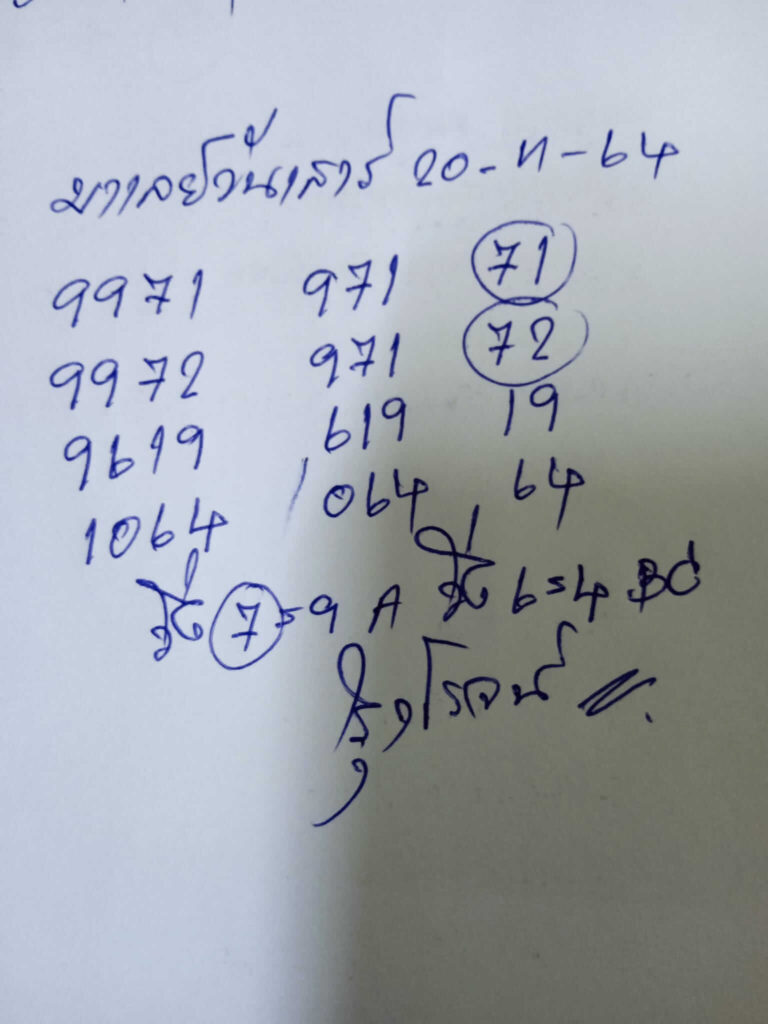 มาเลย์วันเสาร์ 20-11-64
9971 971 71
9972 971 72
9619 619 19
1064 064 64
วิ่ง 7=9 A วิ่ง 6=4 BC
รุ่งโรจน์